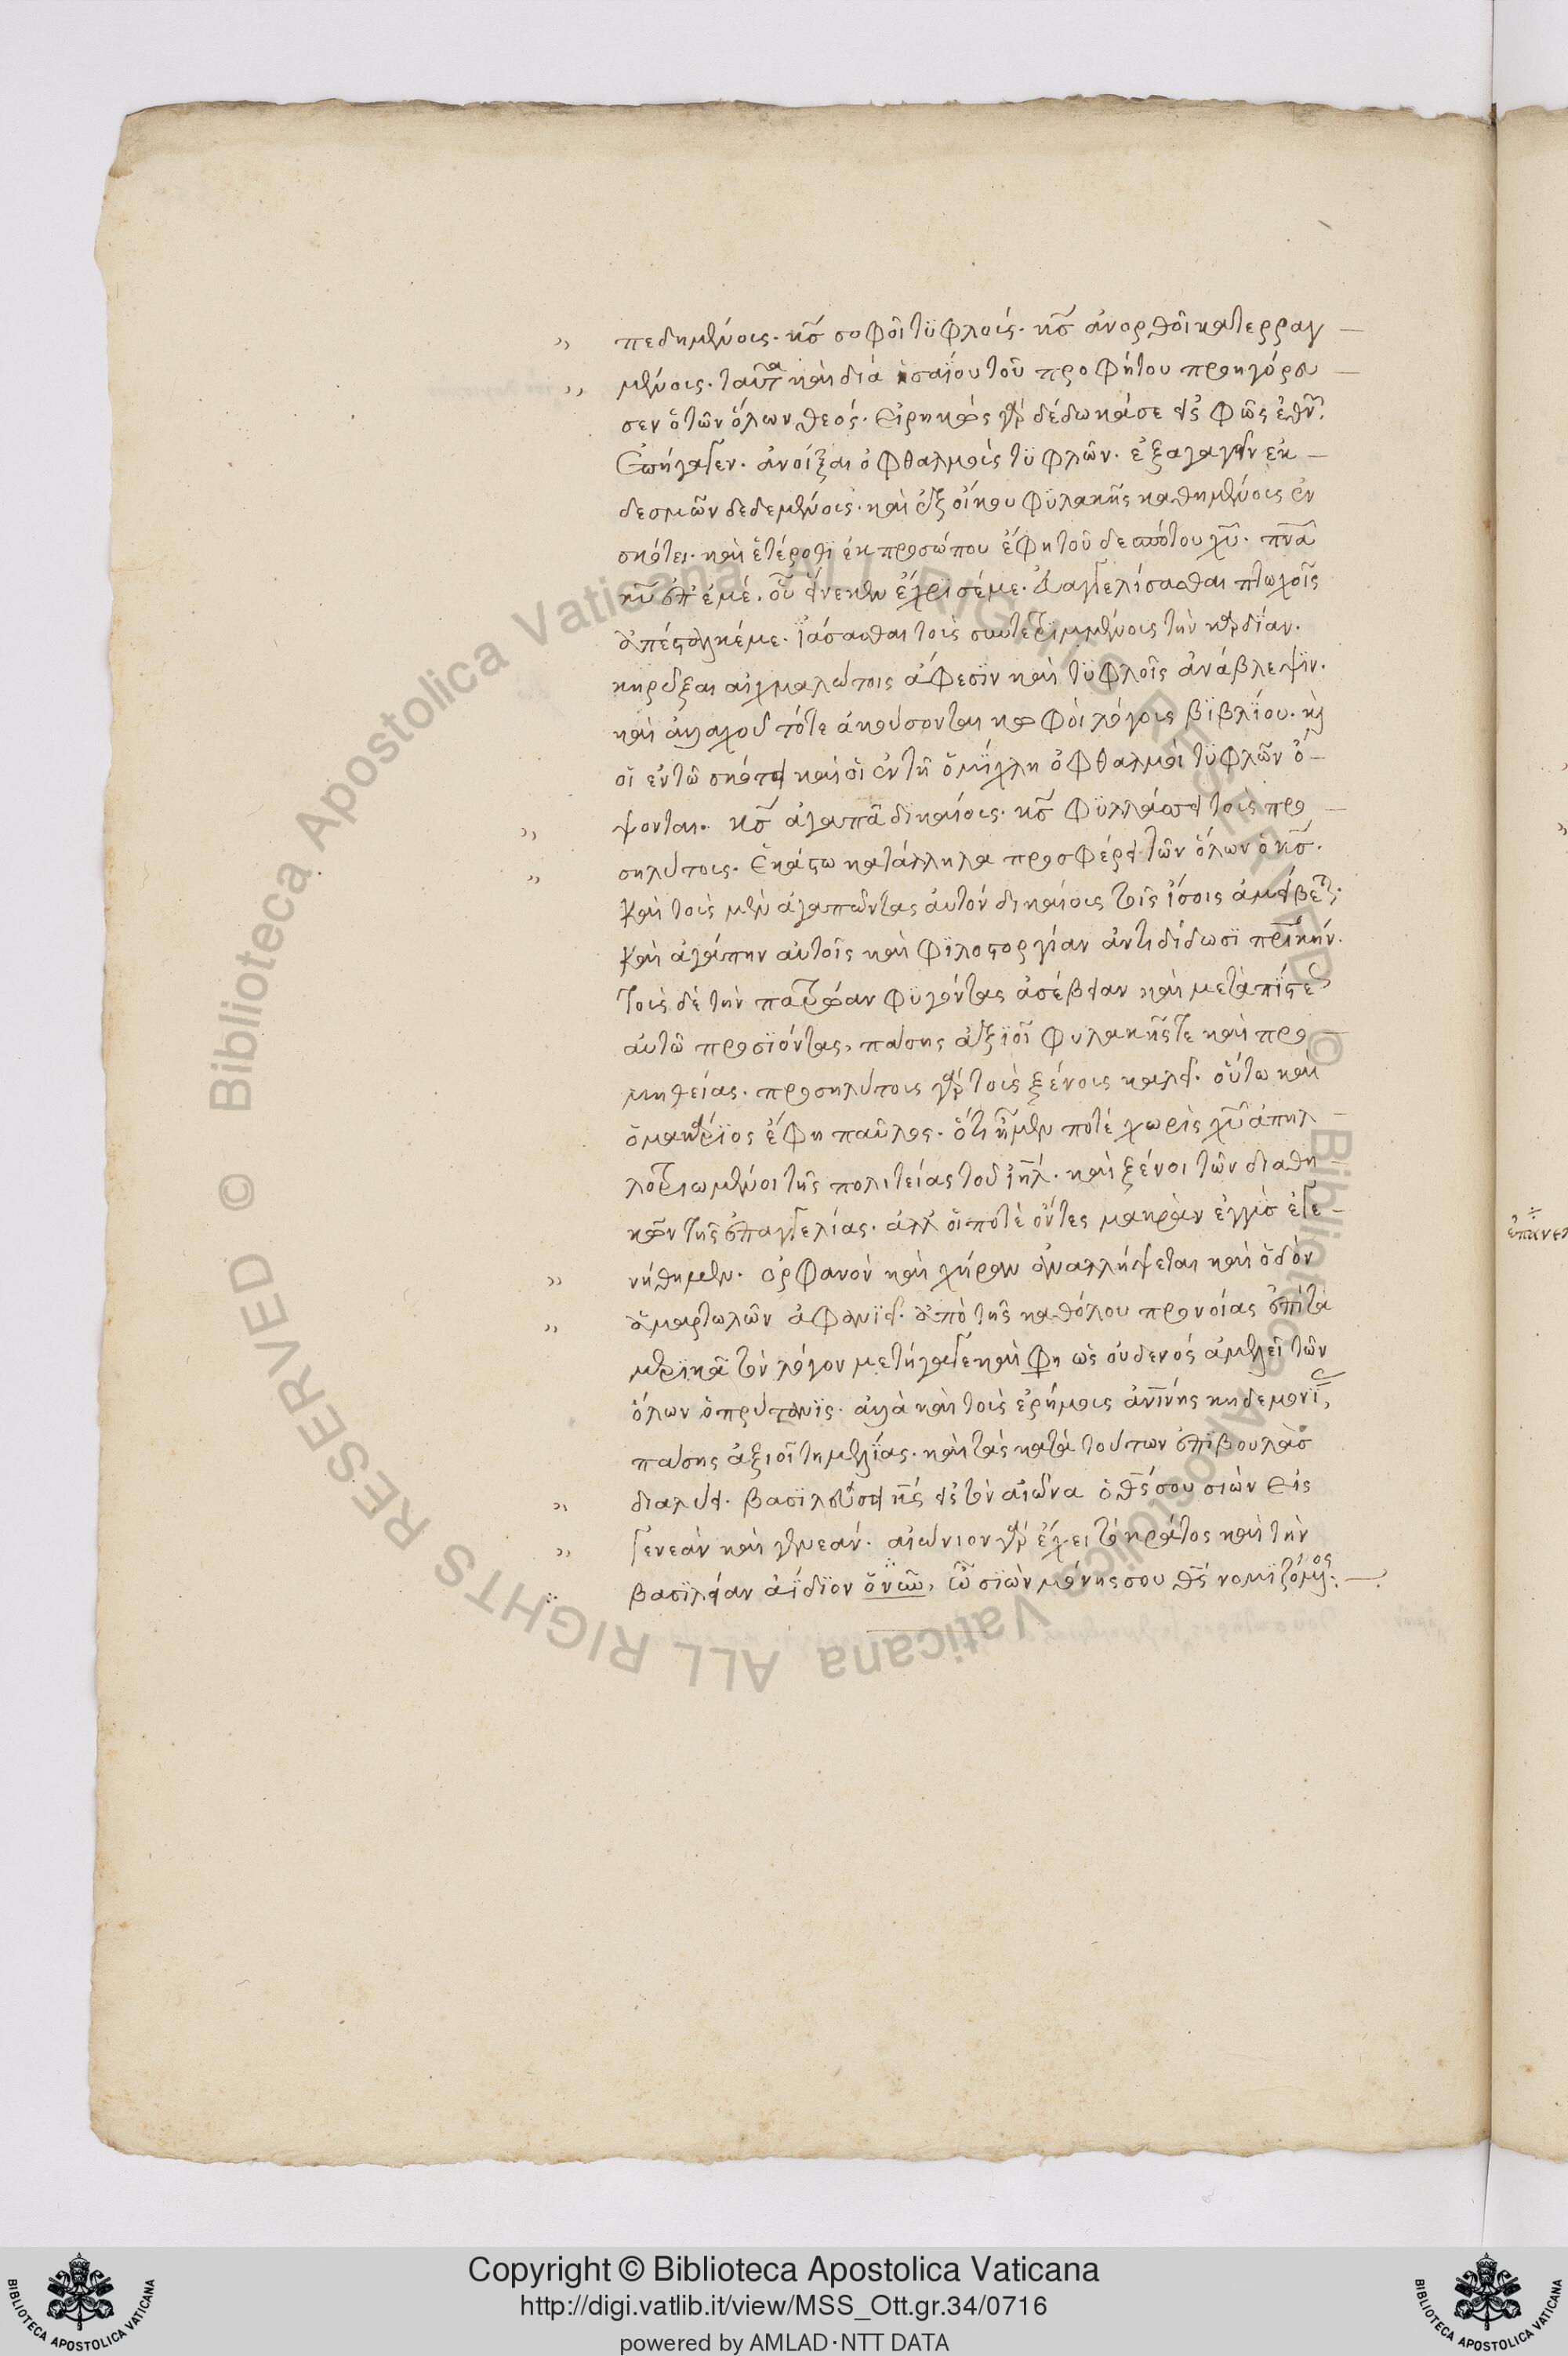 πεδημένοις. κς σοφοῖ τϋφλούς. κς ἀνορθοῖ κατερραγ
μένοις. ταῦτα καὶ διὰ ἡσαΐου τοῦ προφήτου προηγόρευ
σεν ὁ τῶν ὅλων θεός. εἰρηκὼς γὰρ δέδωκά σε εἰς φῶς ἐθν.
ἐπήγαγεν. ἀνοίξαι ὀφθαλμοὺς τϋφλῶν. ἐξαγαγεῖν ἐκ
δεσμῶν δεδεμένους. καὶ ἐξ οἴκου φϋλακῆς καθημένους ἐν
σκότει. καὶ ἑτέρωθι ἐκ προσώπου ἔφη τοῦ δεσπότου χυ. πνα
κυ ἐπ' ἐμέ. οὗ εἵνεκεν ἔχρισέ με. εὐαγγελίσασθαι πτωχοῖς
ἀπέσταλκέ με. ἰάσασθαι τοὺς συντετριμμένους τὴν καρδίαν.
κηρύξαι αἰχμαλώτοις ἄφεσϊν καὶ τϋφλοῖς ἀνάβλεψϊν.
καὶ ἀλλαχοῦ τότε ἀκούσονται κωφοὶ λόγους βϊβλίου. κὶ
οἱ ἐν τῶ σκότει καὶ οἱ ἐν τῆ ὁμίχλη ὀφθαλμοὶ τϋφλῶν ὄ
ψονται. κς ἀγαπᾶ δικαίους. κς φϋλλάσσει τοὺς προ
σηλύτους. ἑκάστω κατάλληλα προσφέρει τῶν ὅλων ὁ κς.
καὶ τοὺς μὲν ἀγαπῶντας αὐτὸν δικαίους τοῖς ἴσοις ἀμείβετ.
καὶ ἀγάπην αὐτοῖς καὶ φϊλοστοργίαν ἀντιδίδωσϊ πρικήν.
τοὺς δὲ τὴν πατρώαν φϋγόντας ἀσέβειαν καὶ μετὰ πίστε
αὐτῶ προσϊόντας, πάσης ἀξϊοῖ φυλακῆς τε καὶ προ
μηθείας. προσηλύτους γὰρ τοὺς ξένους καλεῖ. οὕτω καὶ
ὁ μακάρϊος ἔφη παῦλος. ὅτι ἦμεν ποτὲ χωρὶς χυ ἀπηλ
λοτριωμένοι τῆς πολιτείας τοῦ ιηλ. καὶ ξένοι τῶν διαθη
κῶν τῆς ἐπαγγελίας. ἀλλ' οἵ ποτὲ ὄντες μακρὰν ἐγγὺς ἐγε
νήθημεν. ὀρφανὸν καὶ χήραν ἀναλλήψεται καὶ ὁδὸν
ἁμαρτωλῶν ἀφανιεῖ. ἀπὸ τῆς καθόλου προνοίας ἐπὶ τὰ
μερϊκὰ τὸν λόγον μετήγαγε καὶ φη ὡς οὐδενὸς ἀμελεῖ τῶν
ὅλων ὁ πρύτανϊς. ἀλλὰ καὶ τοὺς ἐρήμους ἀνίνης κηδεμονϊ,
πάσης ἀξιοῖ τημελίας. καὶ τὰς κατὰ τούτων ἐπϊβουλὰς
διαλύει. βασϊλεύσει κς εἰς τὸν αἰῶνα ὁ θς σου σιὼν εἰς
γενεὰν καὶ γενεάν. αἰώνιον γὰρ ἔχει τὸ κράτος καὶ τὴν
βασϊλείαν ἀΐδϊον ὁ νῦν, ὦ σϊὼν μόνης σου θς νομιζόμενος.